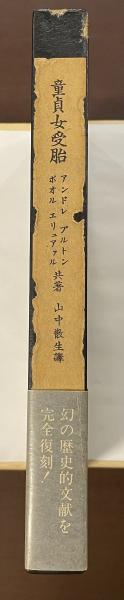 童貞女受胎
アンドレ ブルトン
ポオル エリュアァル
共著
山中散生譯
幻の歴史的文献を
完全復刻!